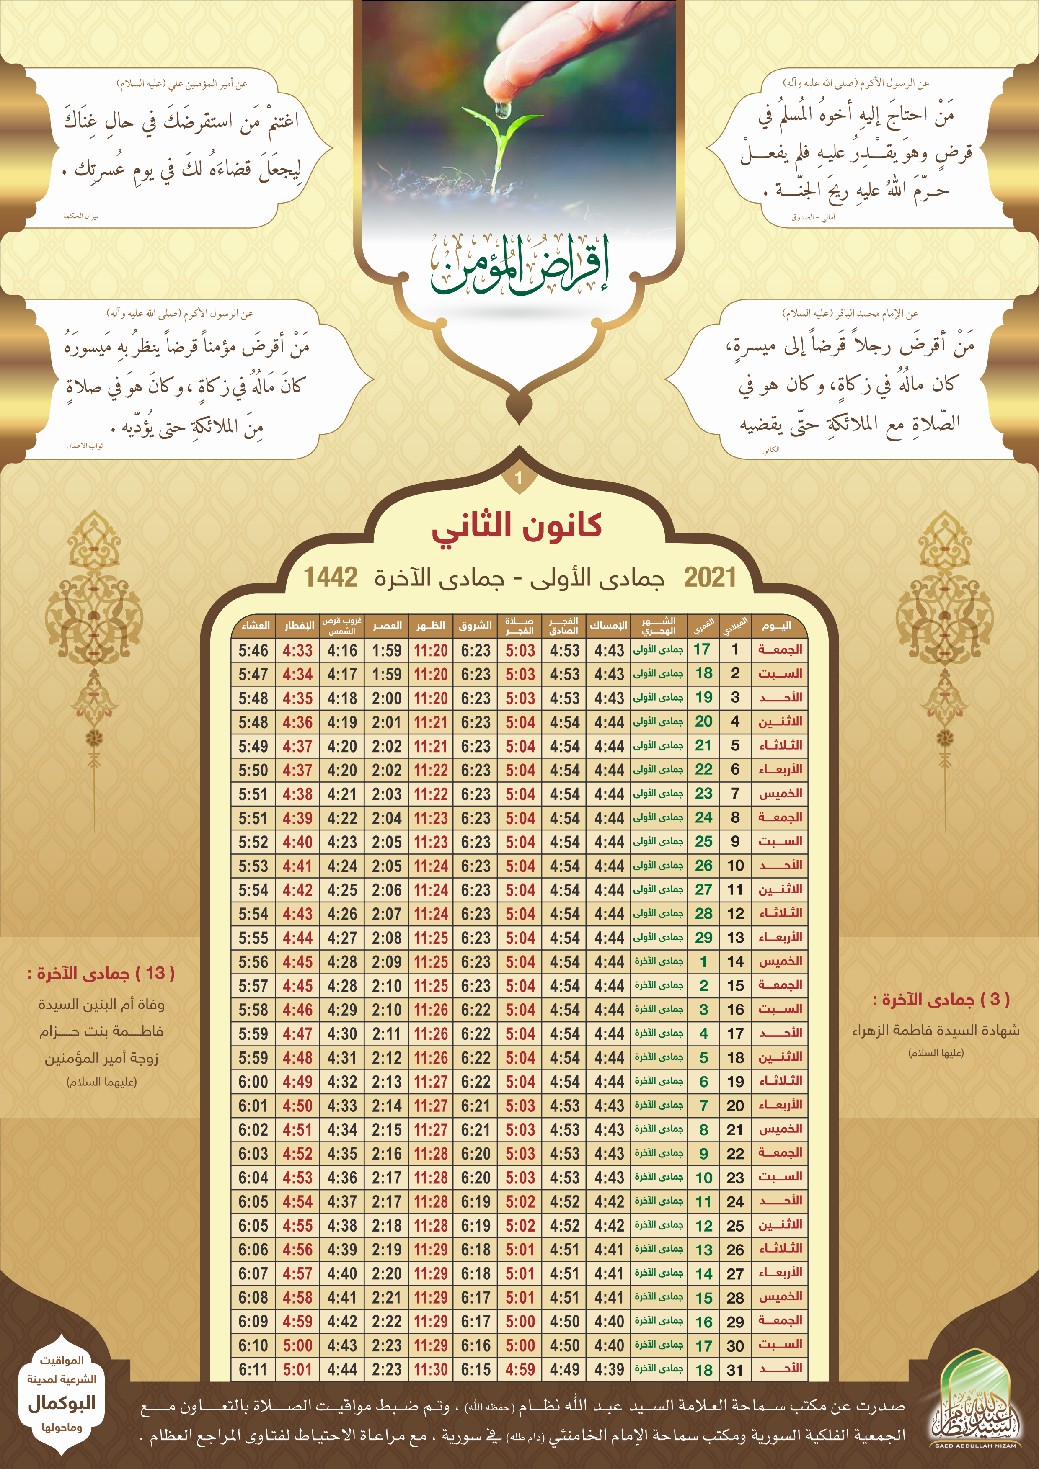 عن الرسول الأكرم (صلى الله عليه وآله)
مَنْ احتاجَ إليهِ أخوهُ المُسلمُ في
قرضٍ وهوَ يقـــدِرُ عليـهِ فلم يفعـــلْ
حـرّمَ اللهُ عليهِ ريحَ الجنّـــة .
أمالي - الصدوق
عن أمير المؤمنين علي (عليه السلام)
اغتنمْ مَن استقرضَكَ في حالِ غِنَاكَ
لِيجعَلَ قضاءَهُ لكَ في يومِ عُسرتِكَ .
ميزان الحكمة
إقراض المؤمن
عن الإمام محمد الباقر (عليه السلام)
مَنْ أقرضَ رجلاً قَرضاً إلى ميسرةٍ،
كان مالُهُ في زكاةٍ، وكان هو في
الصّلاةِ مع الملائكةِ حتّى يقضيه
الكافي
عن الرسول الأكرم (صلى الله عليه وآله)
مَنْ أقرضَ مؤمناً قرضاً ينظرُ بهِ مَيسورَهُ
كانَ مَالُهُ في زكاةٍ ، وكانَ هوَ في صلاةٍ
مِنَ الملائكةِ حتى يُؤدّيه .
ثواب الأعمال
1
كانون الثاني
2021 جمادى الأولى - جمادى الآخرة 1442
اليـوم الميلادي القمري الشــهر الهجري الإمساك الفجـر الصادق صـلاة الفجـر الشروق الظـهـر العصـر غروب قرص الشمس الإفطار العشاء
الجمعـة 1 17 جمادى الأولى 4:43 4:53 5:03 6:23 11:20 1:59 4:16 4:33 5:46
السـبت 2 18 جمادى الأولى 4:43 4:53 5:03 6:23 11:20 1:59 4:17 4:34 5:47
الأحـد 3 19 جمادى الأولى 4:43 4:53 5:03 6:23 11:20 2:00 4:18 4:35 5:48
الاثنـين 4 20 جمادى الأولى 4:44 4:54 5:04 6:23 11:21 2:01 4:19 4:36 5:48
الثلاثـاء 5 21 جمادى الأولى 4:44 4:54 5:04 6:23 11:21 2:02 4:20 4:37 5:49
الأربعـاء 6 22 جمادى الأولى 4:44 4:54 5:04 6:23 11:22 2:02 4:20 4:37 5:50
الخميس 7 23 جمادى الأولى 4:44 4:54 5:04 6:23 11:22 2:03 4:21 4:38 5:51
الجمعـة 8 24 جمادى الأولى 4:44 4:54 5:04 6:23 11:23 2:04 4:22 4:39 5:51
السـبت 9 25 جمادى الأولى 4:44 4:54 5:04 6:23 11:23 2:05 4:23 4:40 5:52
الأحـد 10 26 جمادى الأولى 4:44 4:54 5:04 6:23 11:24 2:05 4:24 4:41 5:53
الاثنـين 11 27 جمادى الأولى 4:44 4:54 5:04 6:23 11:24 2:06 4:25 4:42 5:54
الثلاثـاء 12 28 جمادى الأولى 4:44 4:54 5:04 6:23 11:24 2:07 4:26 4:43 5:54
الأربعـاء 13 29 جمادى الأولى 4:44 4:54 5:04 6:23 11:25 2:08 4:27 4:44 5:55
الخميس 14 1 جمادى الآخرة 4:44 4:54 5:04 6:23 11:25 2:09 4:28 4:45 5:56
الجمعـة 15 2 جمادى الآخرة 4:44 4:54 5:04 6:23 11:25 2:10 4:28 4:45 5:57
السـبت 16 3 جمادى الآخرة 4:44 4:54 5:04 6:22 11:26 2:10 4:29 4:46 5:58
الأحـد 17 4 جمادى الآخرة 4:44 4:54 5:04 6:22 11:26 2:11 4:30 4:47 5:59
الاثنـين 18 5 جمادى الآخرة 4:44 4:54 5:04 6:22 11:26 2:12 4:31 4:48 5:59
الثلاثـاء 19 6 جمادى الآخرة 4:44 4:54 5:04 6:22 11:27 2:13 4:32 4:49 6:00
الأربعـاء 20 7 جمادى الآخرة 4:43 4:53 5:03 6:21 11:27 2:14 4:33 4:50 6:01
الخميس 21 8 جمادى الآخرة 4:43 4:53 5:03 6:21 11:27 2:15 4:34 4:51 6:02
الجمعـة 22 9 جمادى الآخرة 4:43 4:53 5:03 6:20 11:28 2:16 4:35 4:52 6:03
السـبت 23 10 جمادى الآخرة 4:43 4:53 5:03 6:20 11:28 2:17 4:36 4:53 6:04
الأحـد 24 11 جمادى الآخرة 4:42 4:52 5:02 6:19 11:28 2:17 4:37 4:54 6:05
الاثنـين 25 12 جمادى الآخرة 4:42 4:52 5:02 6:19 11:28 2:18 4:38 4:55 6:05
الثلاثـاء 26 13 جمادى الآخرة 4:41 4:51 5:01 6:18 11:29 2:19 4:39 4:56 6:06
الأربعـاء 27 14 جمادى الآخرة 4:41 4:51 5:01 6:18 11:29 2:20 4:40 4:57 6:07
الخميس 28 15 جمادى الآخرة 4:41 4:51 5:01 6:17 11:29 2:21 4:41 4:58 6:08
الجمعـة 29 16 جمادى الآخرة 4:40 4:50 5:00 6:17 11:29 2:22 4:42 4:59 6:09
السـبت 30 17 جمادى الآخرة 4:40 4:50 5:00 6:16 11:29 2:23 4:43 5:00 6:10
الأحـد 31 18 جمادى الآخرة 4:39 4:49 4:59 6:15 11:30 2:23 4:44 5:01 6:11
( 3 ) جمادى الآخرة :
شهادة السيدة فاطمة الزهراء
(عليها السلام)
( 13 ) جمادى الآخرة :
وفاة أم البنين السيدة
فاطـمـة بنت حـــزام
زوجة أمير المؤمنين
(عليهما السلام)
المواقيت
الشرعية لمدينة
البوكمال
وماحولها
صدرت عن مكتب سماحة العلامة السيد عبد الله نظـام (حفظه الله) ، وتـم ضـبط مواقيـت الصـلاة بالتعـاون مـع
الجمعية الفلكية السورية ومكتب سماحة الإمام الخامنئي (دام ظله) في سورية ، مع مراعاة الاحتياط لفتاوى المراجع العظام .
السيد عبدالله نظام
SAED ABDULLAH NIZAM